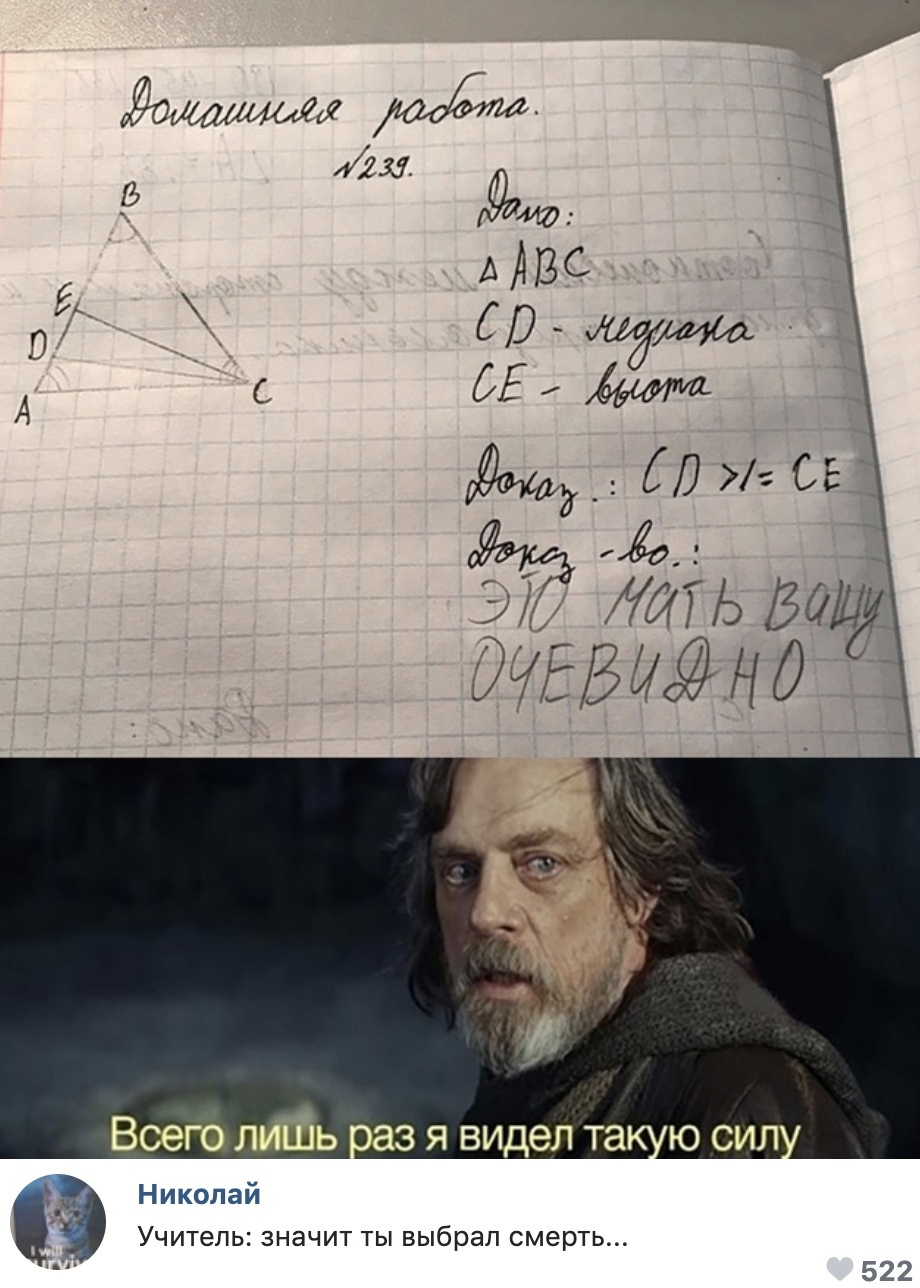 Домашняя работа.
№239.
B
E
D
A
C
Дано:
△ ABC
CD - медиана
CE - высота
Доказ.: CD >/= CE
Доказ-во.:
ЭТО МАТЬ ВАШУ
ОЧЕВИДНО
Всего лишь раз я видел такую силу
Николай
Учитель: значит ты выбрал смерть...
I will
522